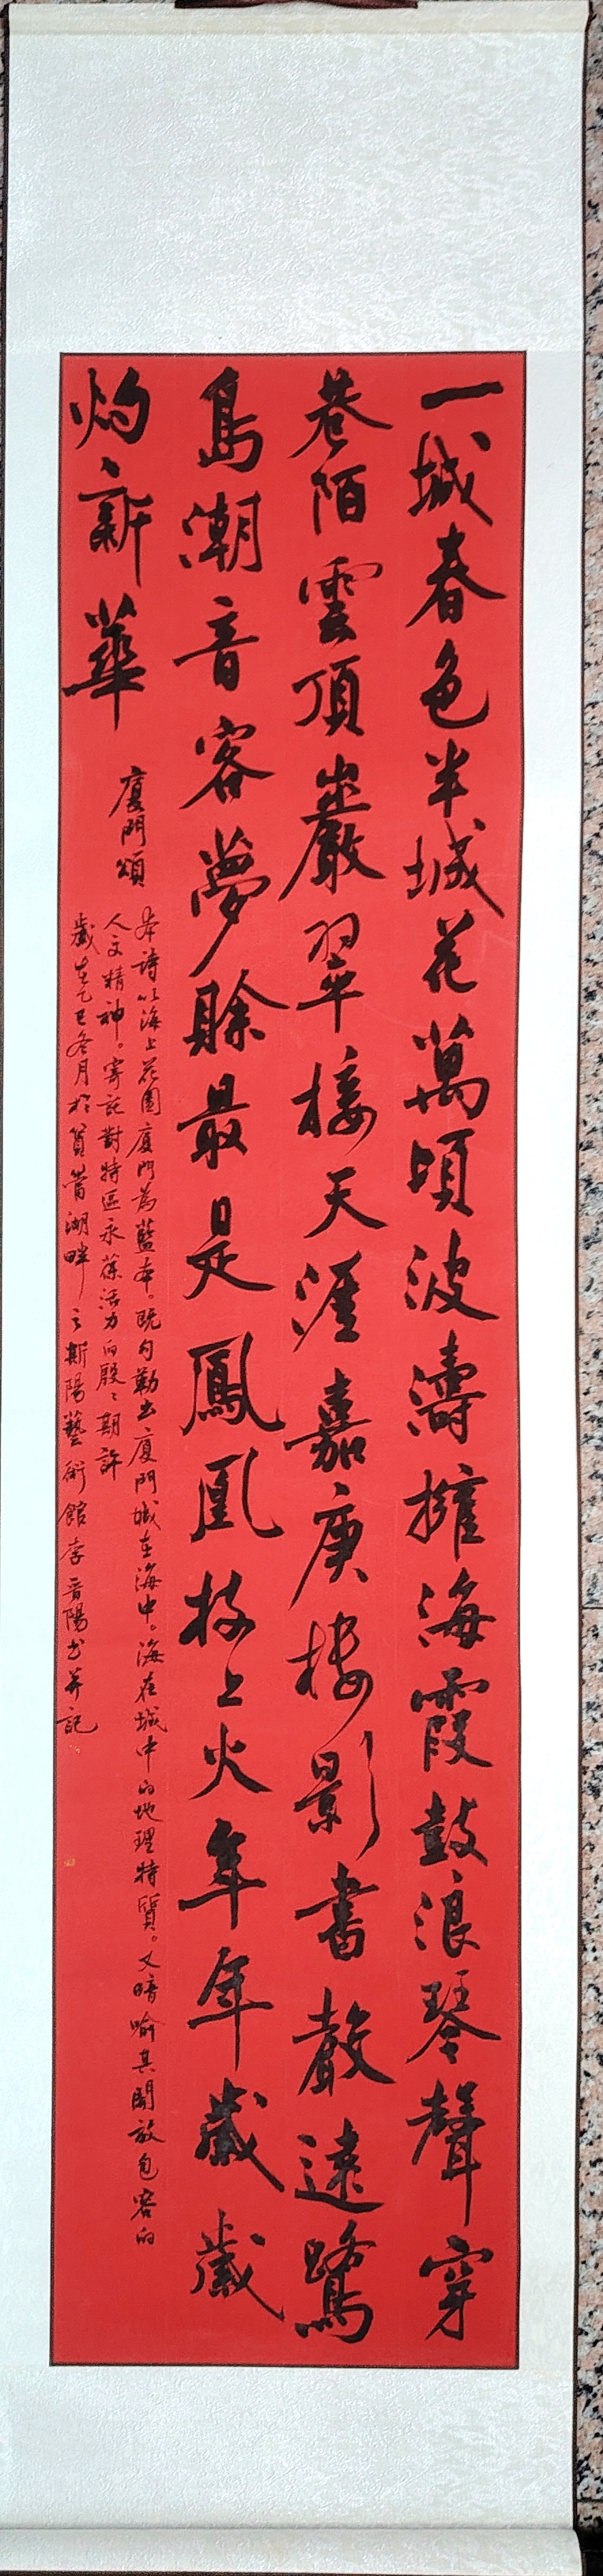 一城春色半城花萬頃波濤擁海霞鼓浪琴聲穿
巷陌雲頂巖翠接天涯嘉庚樓影書聲遠鷺
島潮音客夢賒最是鳳凰枝上火年年歲歲
灼新華
廈門頌
本詩以海上花園廈門為藍本。既勾勒出廈門城在海中。海在城中的地理特質。又暗喻其開放包容的
人文精神。寄託對特區永葆活力的殷殷期許
歲在乙巳冬月於篔簹湖畔之斯陽藝術館李晉陽書並記